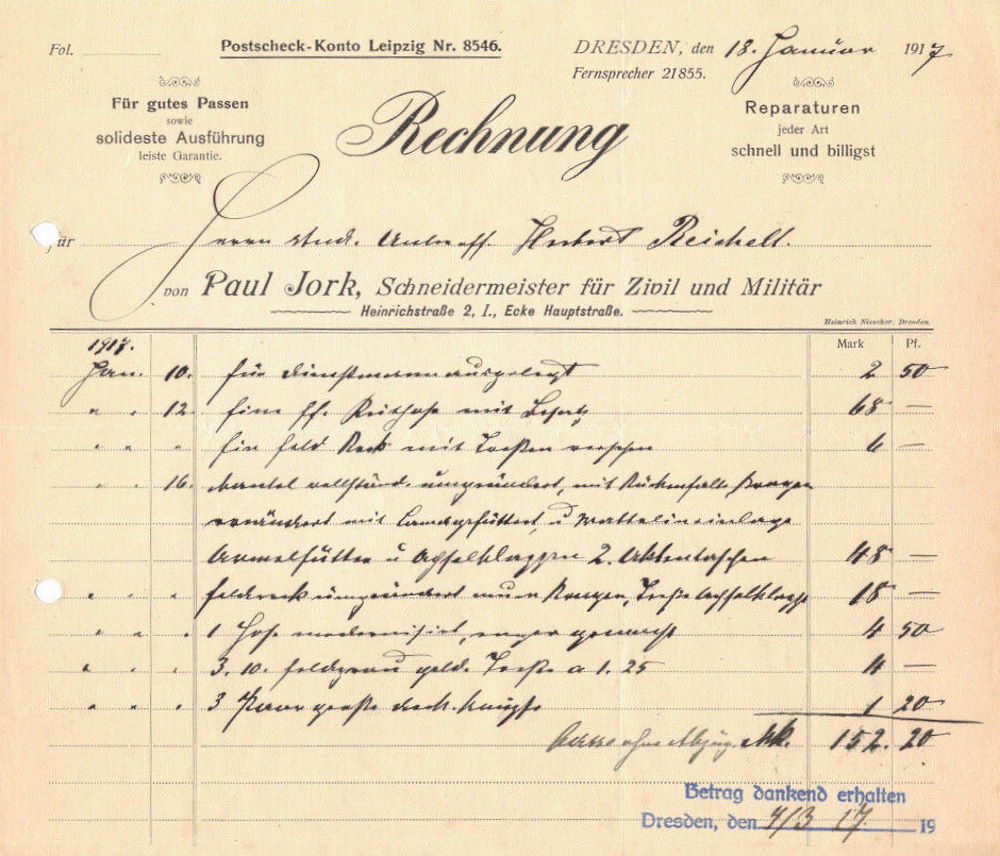 Fol.
Postscheck-Konto Leipzig Nr. 8546.
DRESDEN, den 18. Januar 1917
Fernsprecher 21855.
Für gutes Passen
sowie
solideste Ausführung
leiste Garantie.
Rechnung
Reparaturen
jeder Art
schnell und billigst
für Herrn stud. Unteroff. Herbert Reichelt.
von Paul Jork, Schneidermeister für Zivil und Militär
Heinrichstraße 2, I., Ecke Hauptstraße.
Heinrich Niescher, Dresden.
Mark Pf.
1917.
Jan. 10. für Dienstmann ausgelegt 2 50
" " 12. Eine ff. Reithose mit Besatz 68 —
" " " Ein Feld Rock mit Tressen versehen 6 —
" " 16. Mantel vollständ. umgeändert, mit Rückenfalte, Kragen
verändert mit Lamagefüttert, u Wattelineinlage
Ärmelfutter u Achselklappen 2. Aktentaschen 48 —
" " " Feldrock umgeändert neuen Kragen, Tresse Achselklappe 18 —
" " " 1 Hose modernisirt, enger gemacht 4 50
" " " 3.10. feldgrau gold. Tresse a 1.25 4 —
" " " 3 Paar große Knöpfe 1 20
ohne Abzug. Mk. 152. 20
Betrag dankend erhalten
Dresden, den 4/3 17. 19